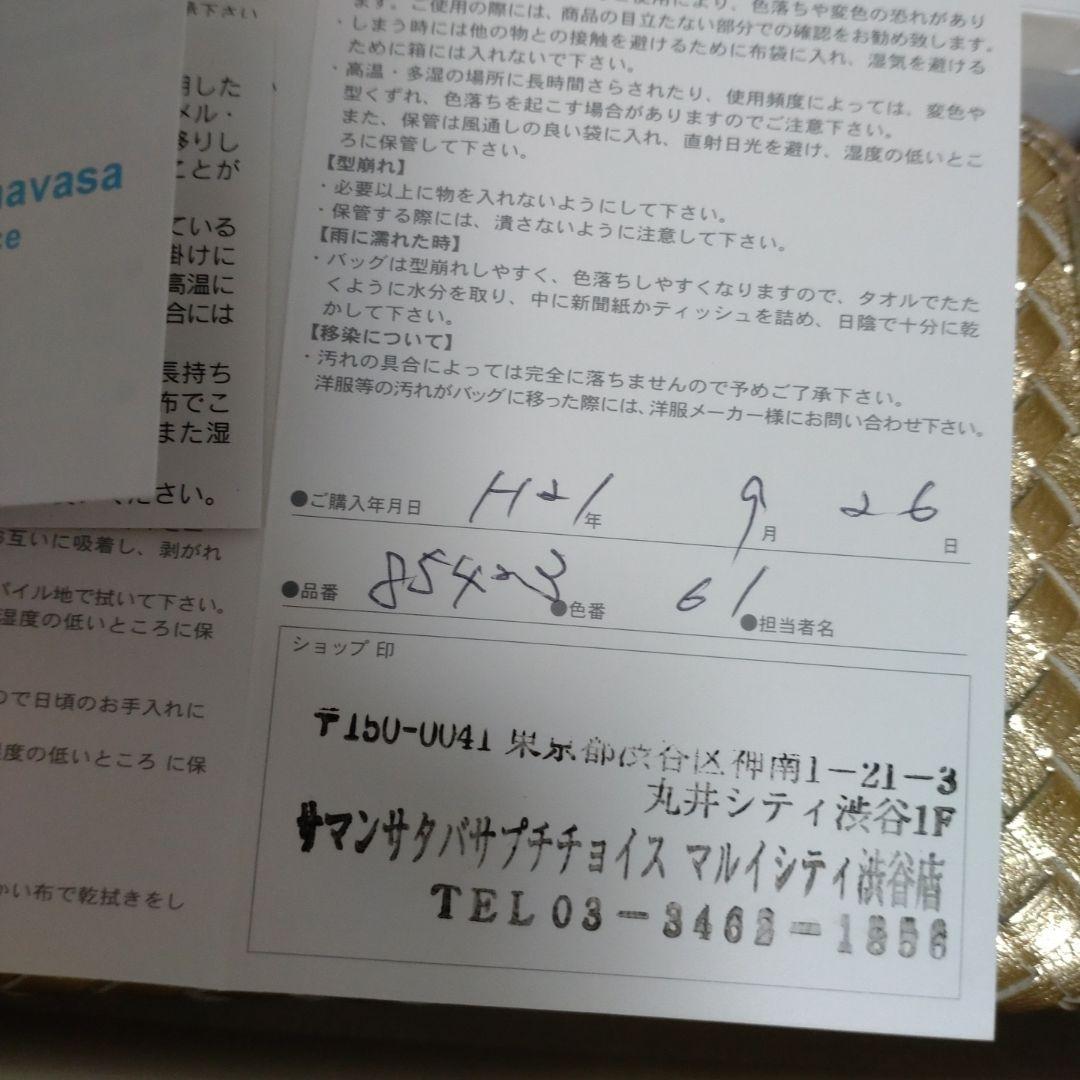 承下さい
用した
メル・
移りし
ことが
ている
掛けに
高温に
合には
長持ち
布でこ
また湿
ください。
avasa
ce
互いに吸着し、剥がれ
パイル地で拭いて下さい。
湿度の低いところに保
ので日頃のお手入れに
度の低いところ に保
かい布で乾拭きをし
により、色落ちや変色の恐れがあり
ます。ご使用の際には、商品の目立たない部分での確認をお勧め致します。
・しまう時には他の物との接触を避けるために布袋に入れ、湿気を避ける
ために箱には入れないで下さい。
・高温・多湿の場所に長時間さらされたり、使用頻度によっては、変色や
型くずれ、色落ちを起こす場合がありますのでご注意下さい。
また、保管は風通しの良い袋に入れ、直射日光を避け、湿度の低いとこ
ろに保管して下さい。
【型崩れ】
・必要以上に物を入れないようにして下さい。
・保管する際には、潰さないように注意して下さい。
【雨に濡れた時】
・バッグは型崩れしやすく、色落ちしやすくなりますので、タオルでたた
くように水分を取り、中に新聞紙かティッシュを詰め、日陰で十分に乾
かして下さい。
【移染について】
・汚れの具合によっては完全に落ちませんので予めご了承下さい。
洋服等の汚れがバッグに移った際には、洋服メーカー様にお問い合わせ下さい。
●ご購入年月日 H21年 9月 26日
●品番 85423 ●色番 61 ●担当者名
ショップ 印
〒150-0041 東京都渋谷区神南1-21-3
丸井シティ渋谷1F
サマンサタバサプチチョイス マルイシティ渋谷店
TEL 03-3462-1856